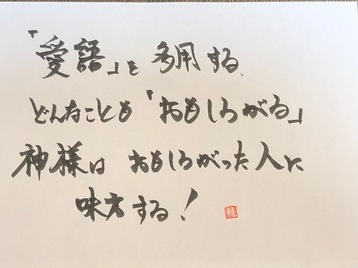 「愛語」を多用する、
どんなことも「おもしろがる」
神様は おもしろがった人に
味方する!
龍